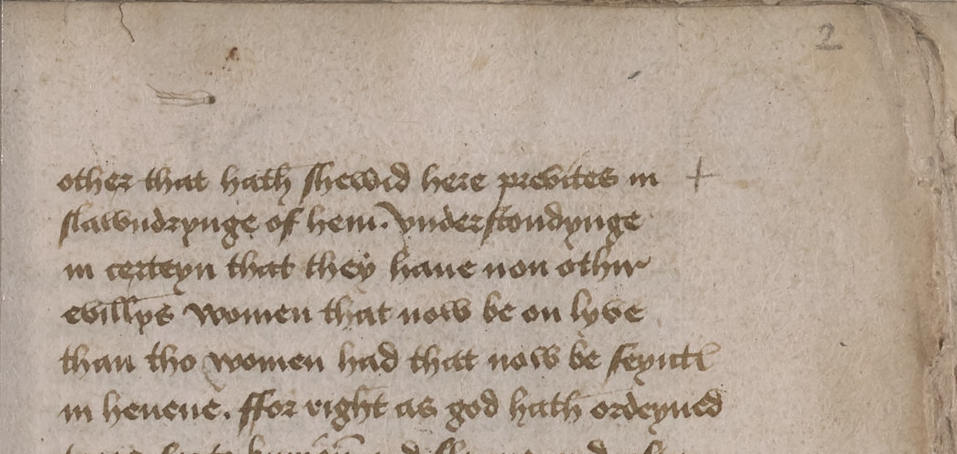 2
other that hath shewid here previtees in +
slawndrynge of hem. vnderstondynge
in certeyn that they haue non othir
evillys women that now be on lyve
than tho women had that now be seynt
in heuene. ffor right as god hath ordeyned